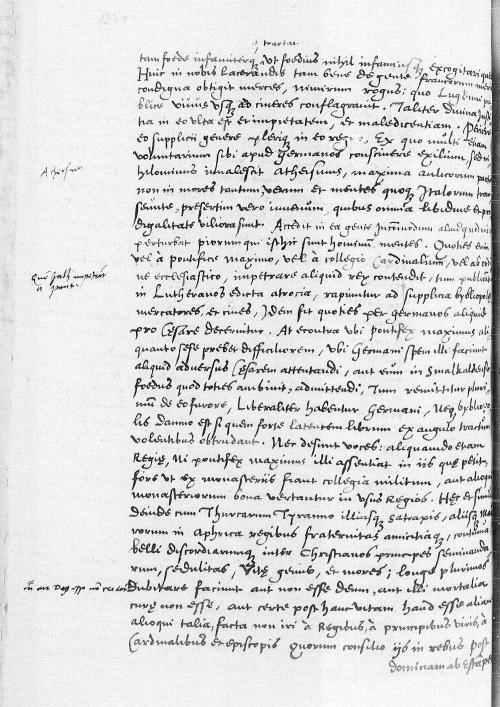 tractat
tam foede infamiterq, ut foedius nihil infamiusq, excogitari que
Huic in nobis lacerandis tam bene de gente Francorum meri
condigna obtigit merces, nimirum rogus: quo Lugduni pu
blice vivus usq, ad cineres conflagravit. Taliter divina Justi
tia in eo ulta est et impietatem, et maledicentiam.
eo supplicii genere plerique in eo regno, Ex quo multi etiam
voluntarium sibi apud Germanos consciverе exilium, sed ni
hilominus invalescit Atheismus, maxima aulicorum parte
non in mores tantum, verum et mentes quoq, Italorum tran
seunte, presertim vero iuvenum, quibus omnia libidine et pro
digalitate viliora sunt. Accedit in ea gente incommodum aliud quod mire
perturbet piorum qui isthic sunt hominum mentes. Quoties enim
vel a pontifice maximo, vel a collegio Cardinalium, vel ab ordi
ne ecclesiastico, impetrare aliquid rex contendit, tum publicat
in Lutheranos edicta atrocia, rapiuntur ad supplicia bybliopole
mercatores, et cives, Idem fit quoties per germanos aliquid
pro Cesare decernitur. At econtra ubi pontifex maximus ali
quanto sese prebet difficiliorem, ubi Germani spem illi faciunt
aliquid adversus Cesarem attentandi, aut eum in Smalkaldense
foedus quod toties ambivit, admittendi, Tum remittitur pluri
mum de eo furore, Liberaliter habentur Germani, Neq, bybliopo
lis damno est si quem forte latentem librum ex angulo tractum
volentibus obtrudant. Nec desunt voces: aliquando etiam
Regie, Ni pontifex maximus illi assentiat in iis que petit,
fore ut ex monasteriis fiant collegia militum, aut alioqui
monasteriorum bona vertantur in usus Regios. Hec et similia
deinde cum Thurcarum Tyranno illiusq, satrapis, aliisq, Mau
rorum in Aphrica regibus fraternitas amicitiaq, continua
belli discordiarumq, inter Christianos principes seminanda
rum, sedulitas, Vite genus, et mores; longe plurimos
dubitare faciunt aut non esse deum, aut illi mortalia
cure non esse, aut certe post hanc vitam haud esse aliam
alioqui talia facta non iri a Regibus, a principibus viris, a
Cardinalibus et episcopis Quorum consilio iis in rebus post
dominam ab Estape
Atheismus